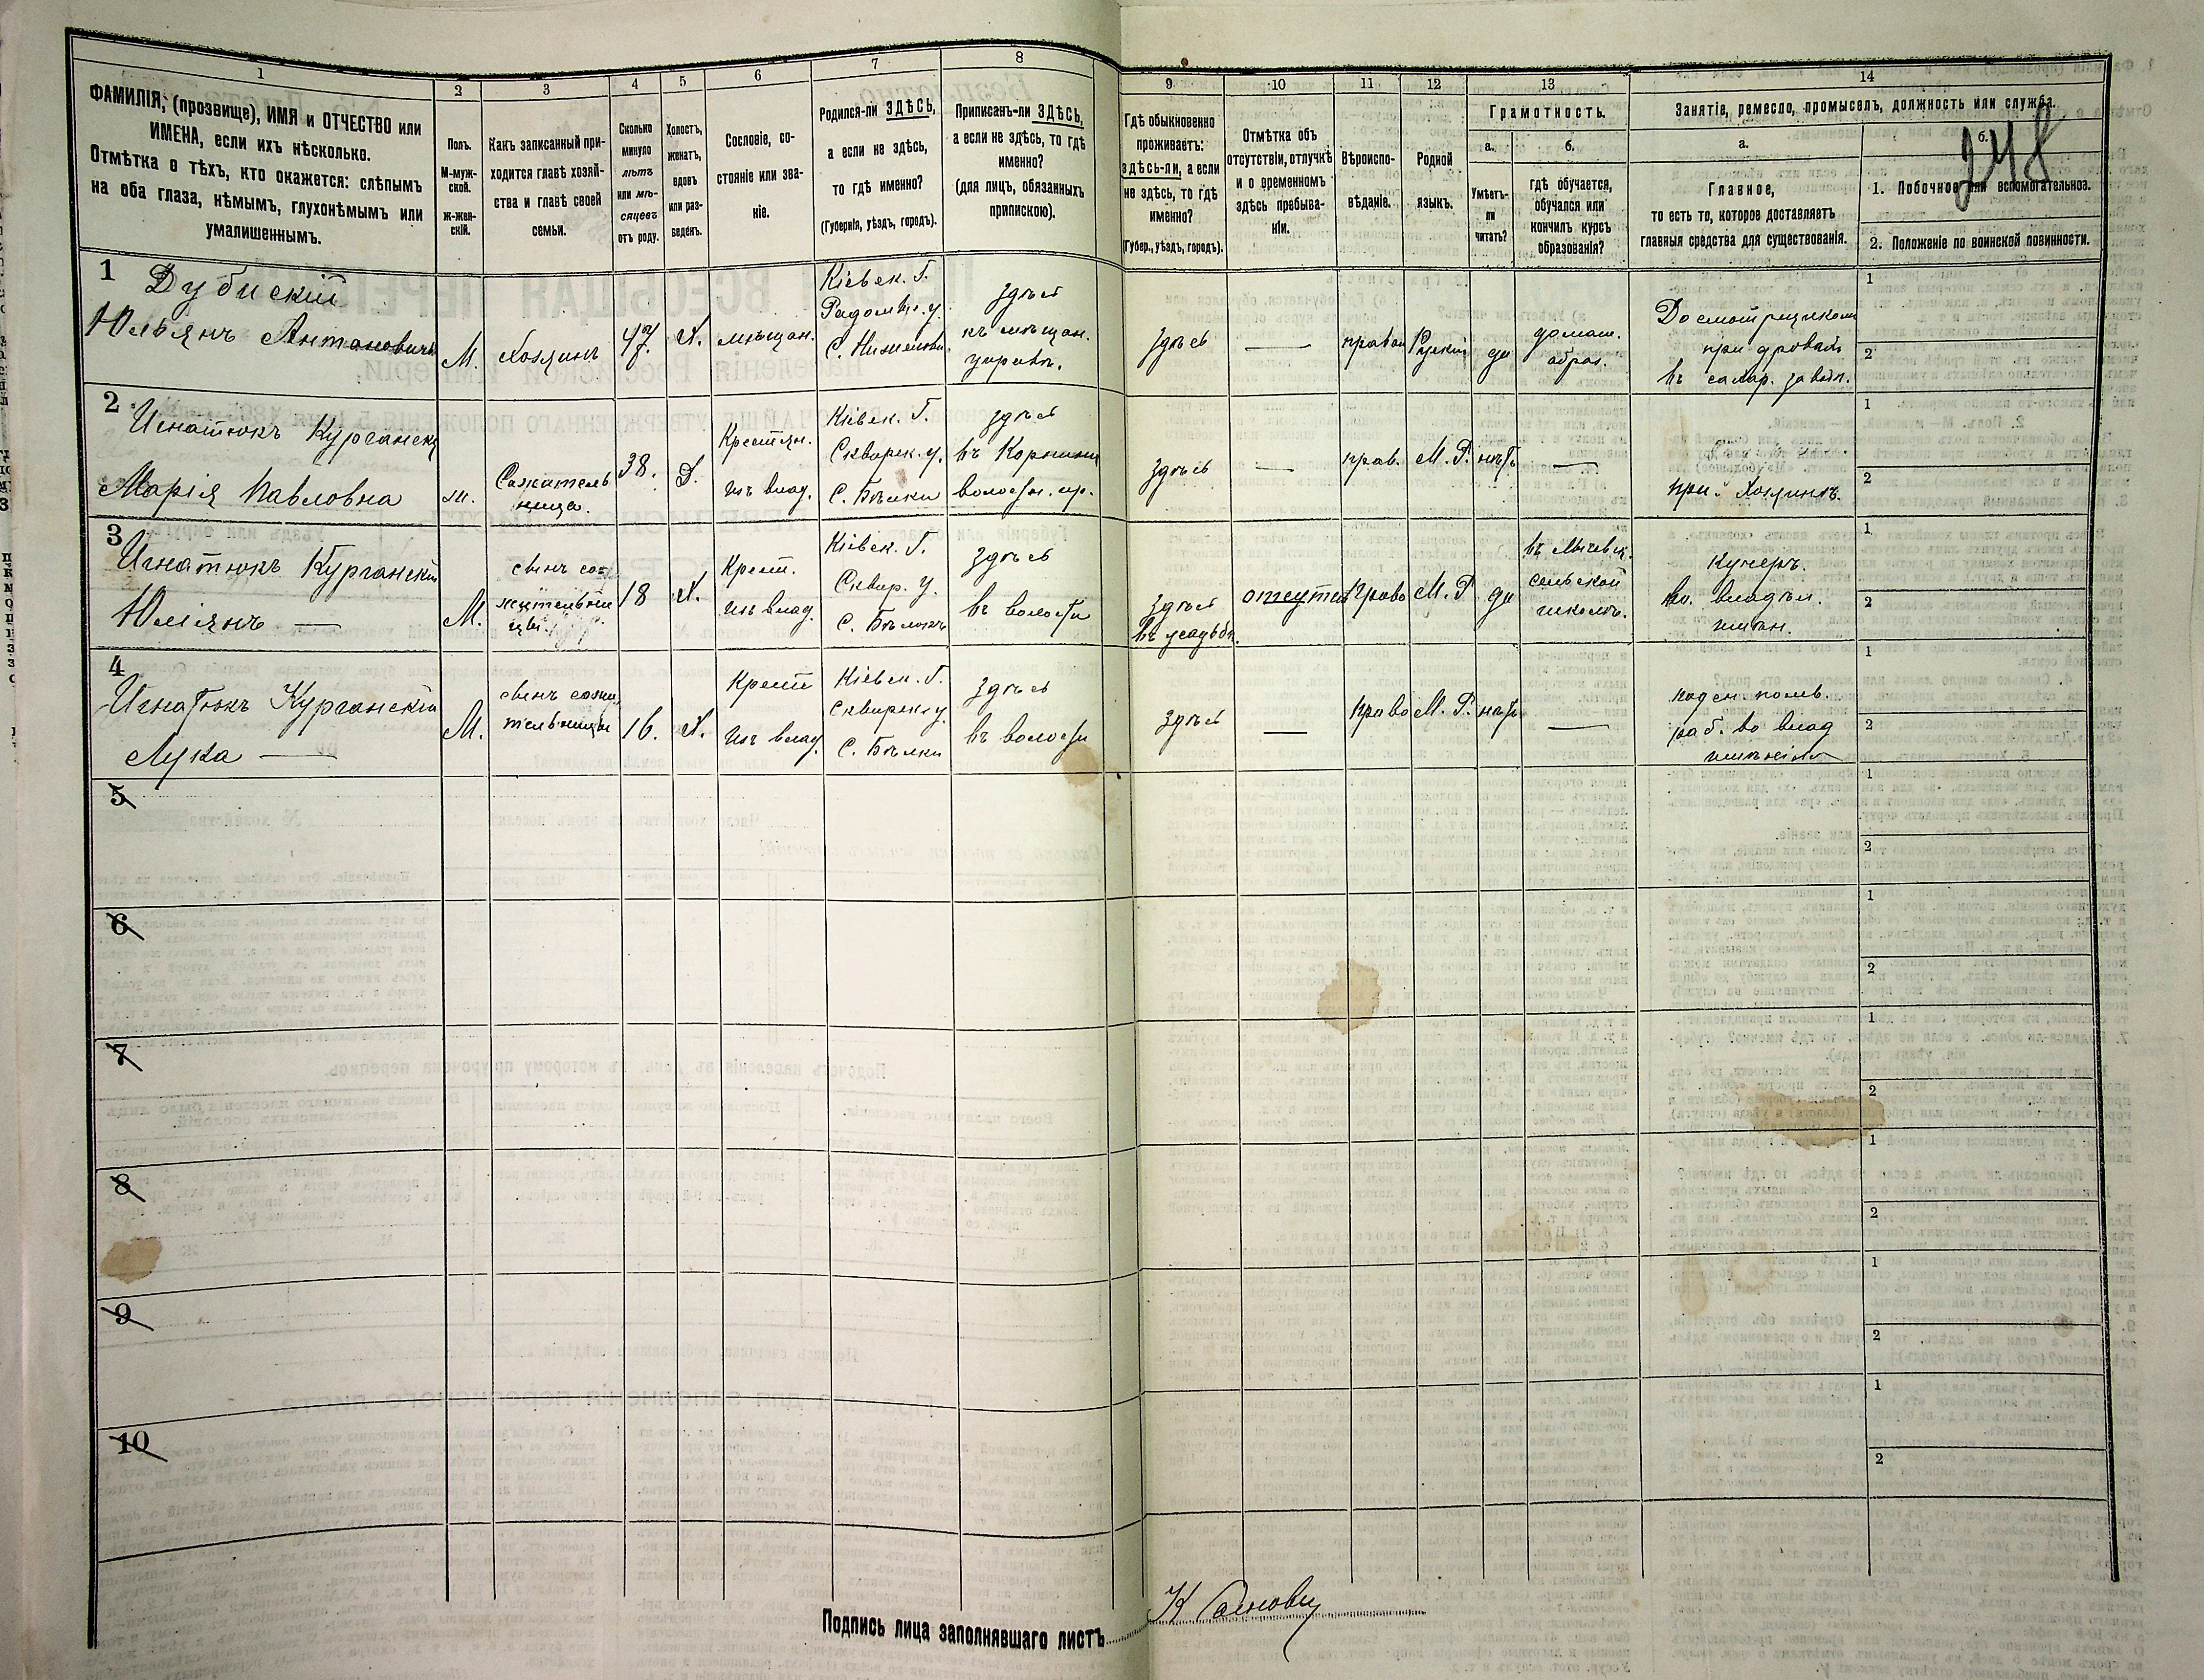 1
2
3
4
5
6
7
8
9
10
11
12
13
14
ФАМИЛІЯ, (прозвище), ИМЯ и ОТЧЕСТВО или
ИМЕНА, если ихъ нѣсколько.
Отмѣтка о тѣхъ, кто окажется: слѣпымъ
на оба глаза, нѣмымъ, глухонѣмымъ или
умалишеннымъ.
Полъ.
М-муж-
ской.
ж-жен-
скій.
Какъ записанный при-
ходится главѣ хозяй-
ства и главѣ своей
семьи.
Сколько
минуло
лѣтъ
или мѣ-
сяцевъ
отъ роду.
Холостъ,
женатъ,
вдовъ
или раз-
веденъ.
Сословіе, со-
стояніе или зва-
ніе.
Родился-ли ЗДѢСЬ,
а если не здѣсь,
то гдѣ именно?
(Губернія, уѣздъ, городъ).
Приписанъ-ли ЗДѢСЬ,
а если не здѣсь, то гдѣ
именно?
(для лицъ, обязанныхъ
припискою).
Гдѣ обыкновенно
проживаетъ:
здѣсь-ли, а если
не здѣсь, то гдѣ
именно?
(Губер., уѣздъ, городъ).
Отмѣтка объ
отсутствіи, отлучкѣ
и о временномъ
здѣсь пребыва-
ніи.
Вѣроиспо-
вѣданіе.
Родной
языкъ.
Грамотность.
а.
Умѣетъ-
ли
читать?
б.
гдѣ обучается,
обучался или
кончилъ курсъ
образованія?
Занятіе, ремесло, промыселъ, должность или служба.
а.
Главное,
то есть то, которое доставляетъ
главныя средства для существованія.
б.
248
1. Побочное или вспомогательное.
2. Положеніе по воинской повинности.
1
Дубискій
Юльянъ Антановичъ
М.
Хозяинъ
47.
Х.
мѣщан.
Кіевск. Г.
Радомы. у.
С.
здѣсь
къ мѣщан.
управѣ.
здѣсь
—
правои
Рускій
да
домаш.
образ.
Досмотрщикомъ
при дровахъ
въ сахар. завод.
1
2
2
Игнатюкъ Курганска
Марія Павловна
м.
Сажитель
ница.
38.
Д.
Крестян.
изъ влад.
Кіевск. Г.
Сквирск. у.
С. Бѣлки
здѣсь
въ Корнинск
волостн. пр.
здѣсь
—
прав.
М. Р.
нѣтъ
—
при Хозяинѣ.
1
2
3
Игнатюкъ Курганскій
Юліянъ —
М.
сынъ сож
жительни
цы.
18
Х.
Крест.
изъ влад.
Кіевск. Г.
Сквир. у.
С. Бѣлокъ
здѣсь
въ волости
здѣсь
въ усадьбѣ.
отсутст
Право
М. Р
да
въ
сельской
школѣ.
Кучеръ.
во. владѣл.
имѣн.
1
2
4
Игнатюкъ Курганскій
Лука —
М.
сынъ сожи
тельницы
16.
Х.
Крест
изъ влад.
Кіевск. Г.
Сквирск у.
С. Бѣлки
здѣсь
въ волости
здѣсь
—
Право
М. Р.
нѣтъ
—
поден. полев.
раб. во влад
имѣніи
1
2
5
1
2
6
1
2
7
1
2
8
1
2
9
1
2
10
1
2
Подпись лица заполнявшаго листъ